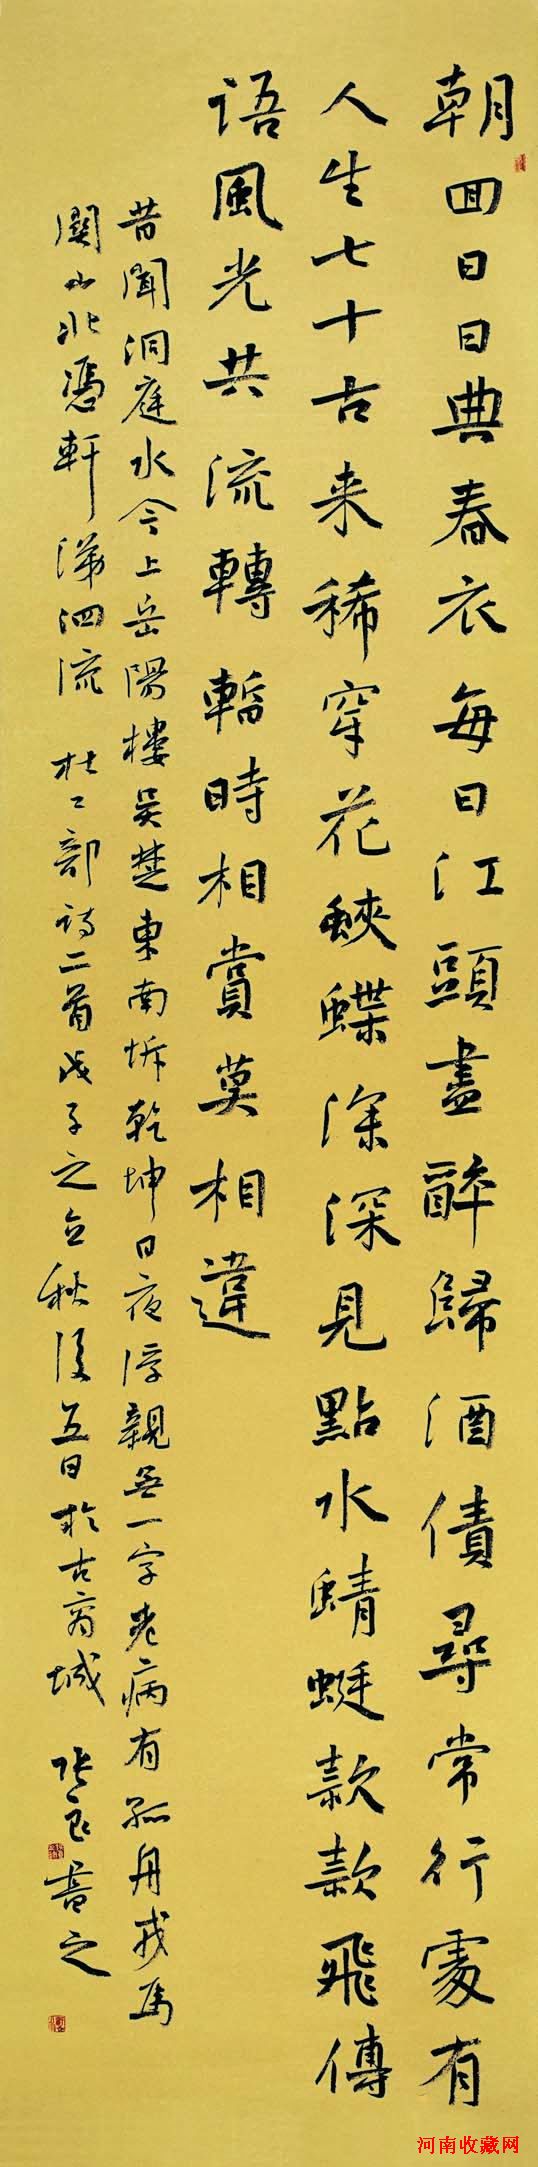 朝回日日典春衣每日江頭盡醉歸酒債尋常行處有
人生七十古来稀穿花蛺蝶深深見點水蜻蜓款款飛傳
语風光共流轉暫時相賞莫相違
昔聞洞庭水今上岳陽樓吴楚東南坼乾坤日夜浮親無一字老病有孤舟戎馬
關山北憑軒涕泗流 杜工部詩二首戊子之立秋後五日於古商城 張良書之
河南收藏网